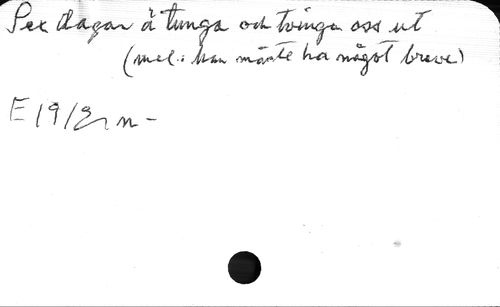 Sex dagar å tunga och tvinga oss ut
(mel.: han måste ha något breve)
E 19/8 n -